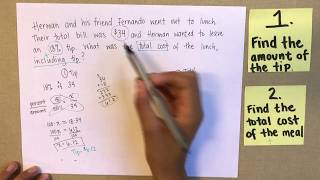 Herman and his friend Fernando went out to lunch.
Their total bill was $34 and Herman wanted to leave
an 18% tip. What was the total cost of the lunch,
including tip.
① Tip
18% of 34
100·x = 18·34
x = 6.12
Tip= $6.12
1.
Find the
amount of
the tip.
2.
Find the
total cost
of the meal